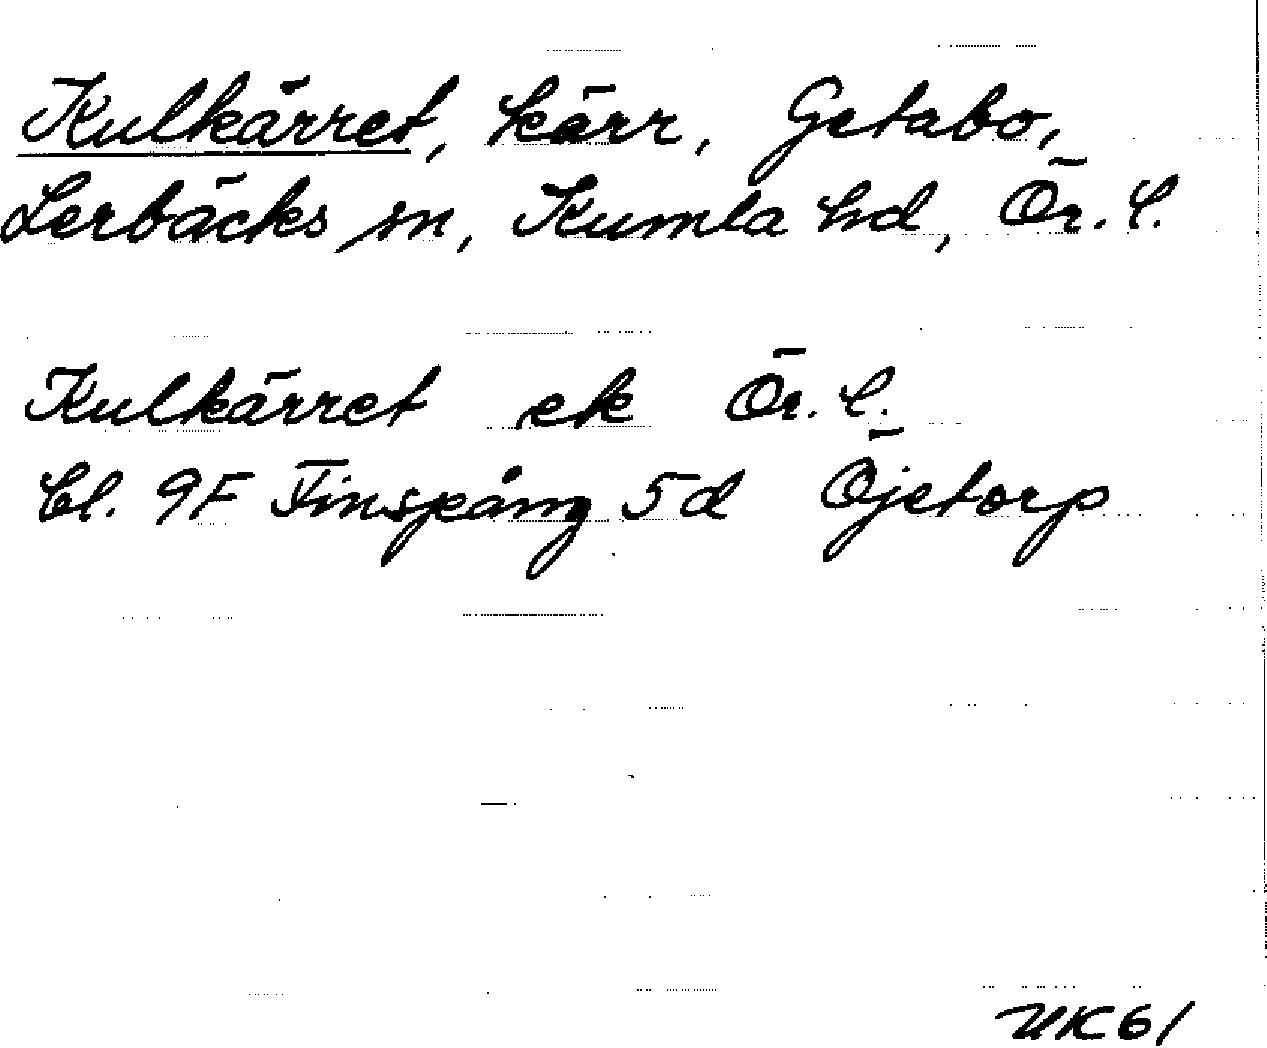 Kulkärret, kärr, Getabo,
Lerbäcks sn, Kumla hd, Ör. l.
Kulkärret ek Ör. l.
bl. 9F Finspång 5d Öjetorp
UK61